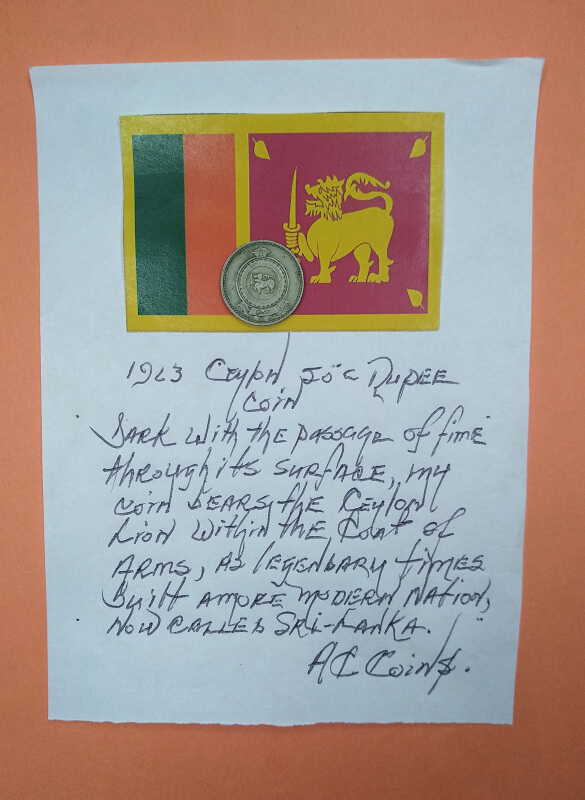 1963 Ceylon 50 c Rupee
Coin
Dark with the passage of time
through its surface, my
coin bears the Ceylon
Lion within the Coat of
Arms, as legendary times
built a more modern nation,
now called Sri-Lanka.
AC Coin$.